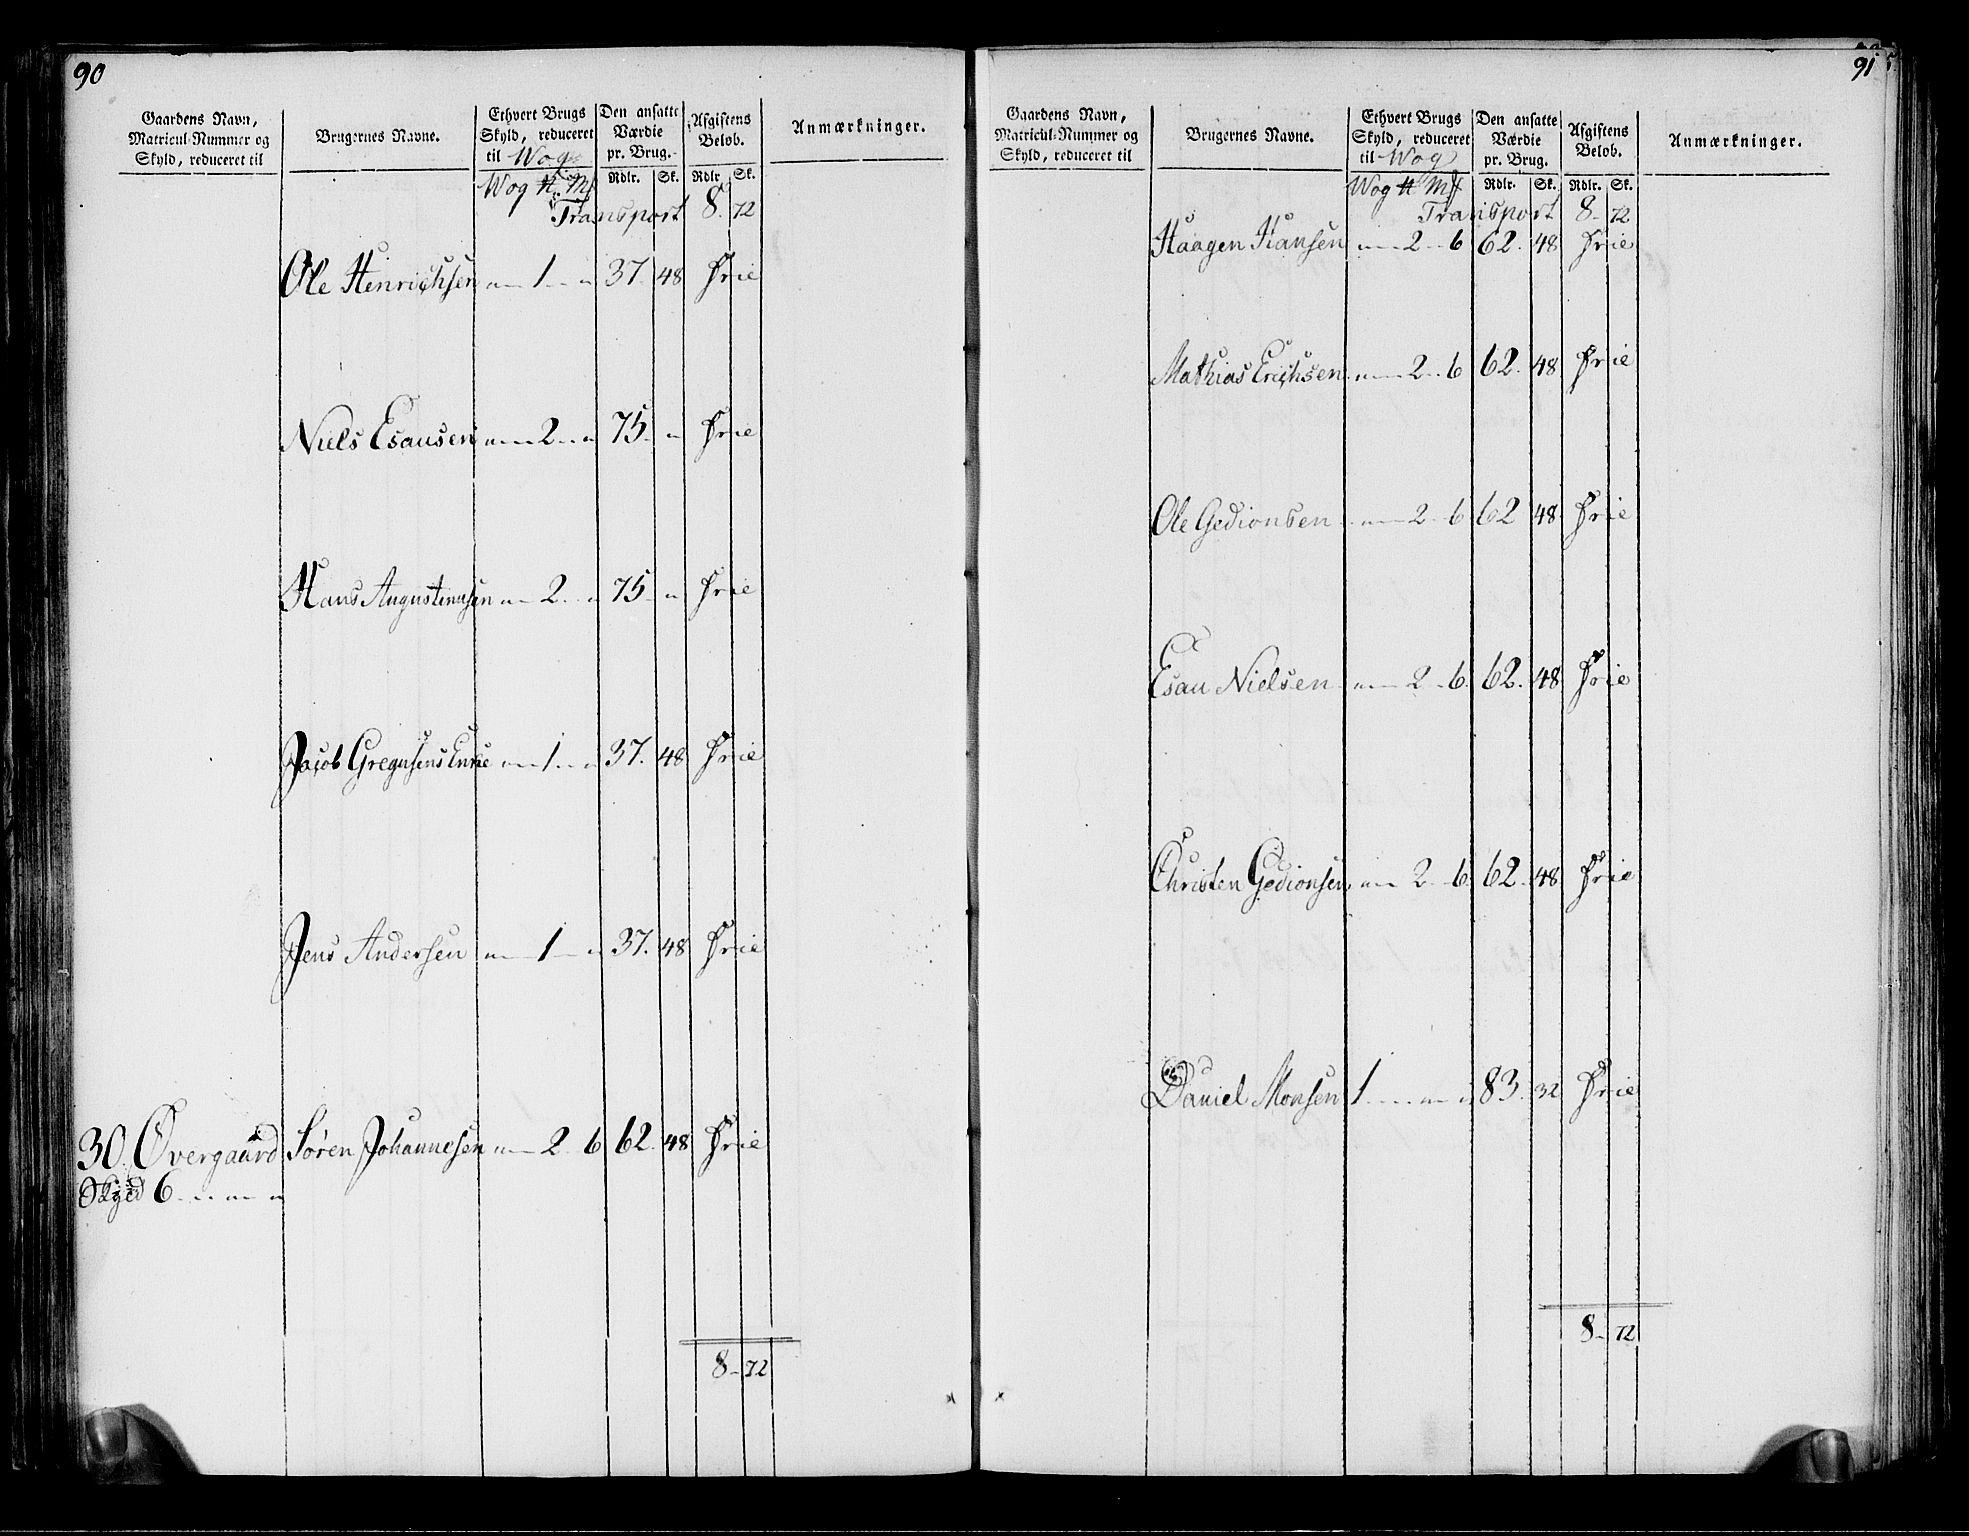 90
Gaardens Navn, Matricul-Nummer og Skyld, reduceret til
Brugernes Navne.
Ethvert Brugs Skyld, reduceret til Wog
Den ansatte Værdie pr. Brug.
Afgiftens Beløb.
Anmærkninger.
Wog Rdlr. Sk. Rdlr. Sk.
Transport 8. 72
Ole Henrichsen " 1 " 37. 48 Frie
Niels Esausen " 2 " 75. " Frie
Hans Augustinusen " 2 " 75. " Frie
Jacob Gregusens Enke " 1 " 37. 48 Frie
Jens Andersen " 1 " 37. 48 Frie
30. Øvergaard Søren Johannesen " 2 6 62. 48 Frie
Skyld 6 " "
8 - 72
91
Gaardens Navn, Matricul-Nummer og Skyld, reduceret til
Brugernes Navne.
Ethvert Brugs Skyld, reduceret til Wog
Den ansatte Værdie pr. Brug.
Afgiftens Beløb.
Anmærkninger.
Wog Rdlr. Sk. Rdlr. Sk.
Transport 8 - 72
Haagen Hansen " 2 6 62. 48 Frie
Mathias Erichsen " 2 6 62. 48 Frie
Ole Gedionsen " 2 6 62 48 Frie
Esau Nielsen " 2 6 62. 48 Frie
Christen Gedionsen " 2 6 62. 48 Frie
Daniel Monsen 1 " " 83. 32 Frie
8 - 72